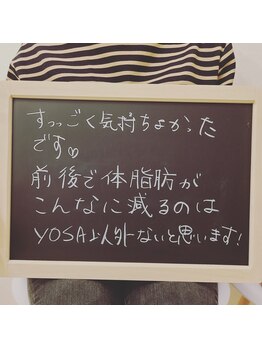 すっごく気持ちよかった
です♡
前後で体脂肪が
こんなに減るのは
YOSA以外ないと思います!